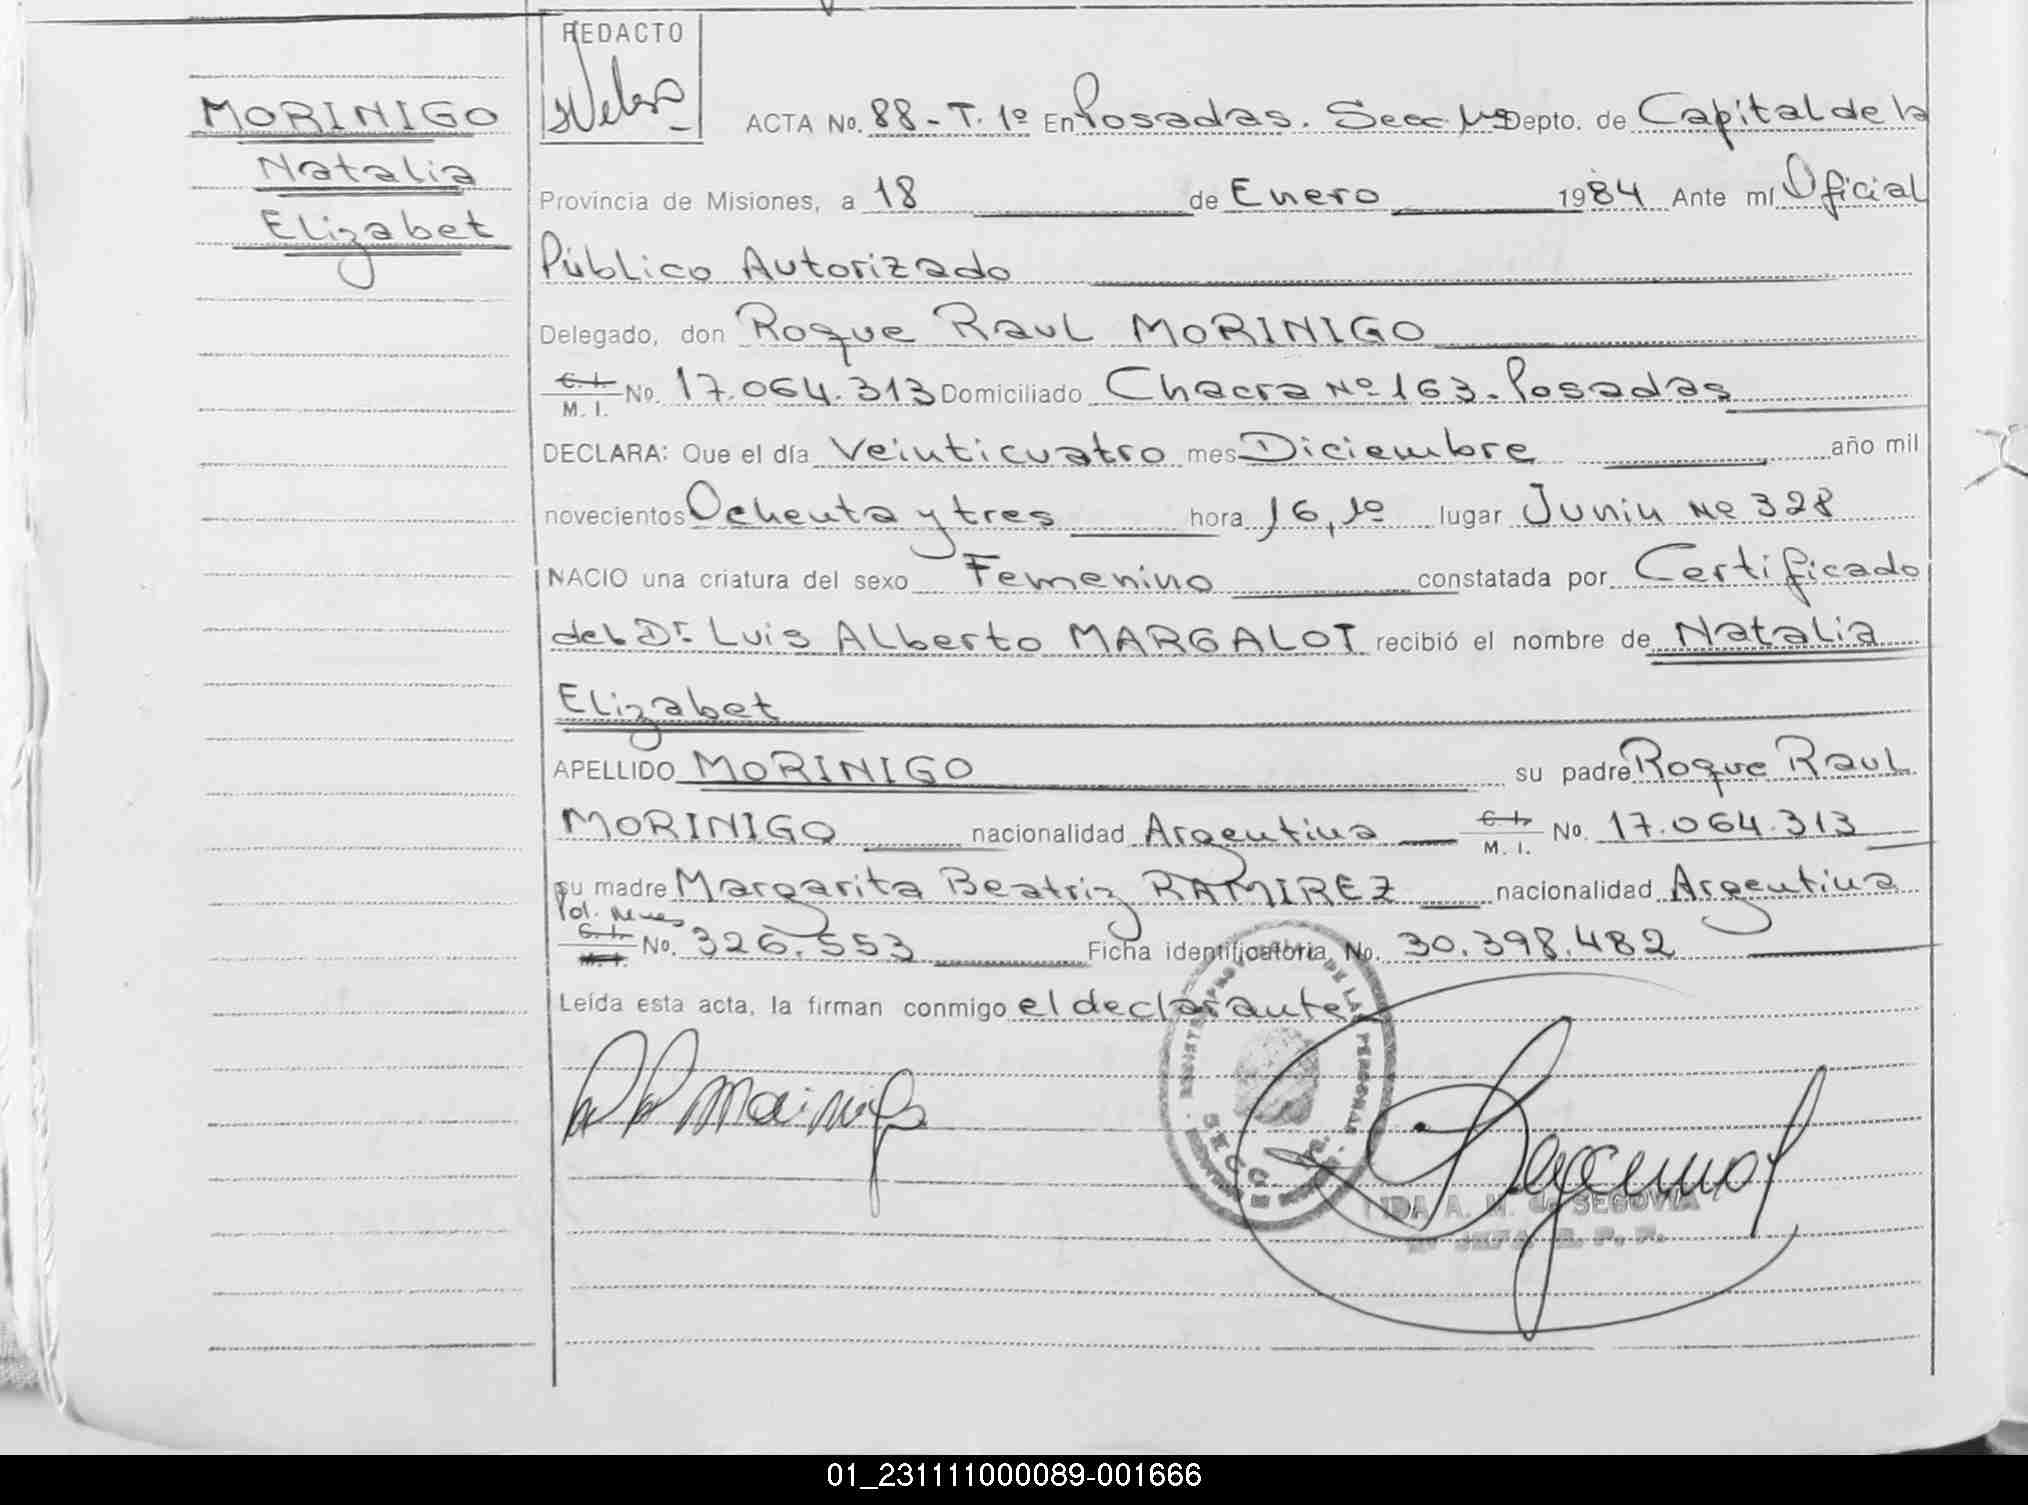 REDACTO
MORINIGO
Natalia
Elizabet
ACTA No. 88-T. 1º En Posadas. Secc Depto. de Capital de la
Provincia de Misiones, a 18 de Enero 1984 Ante mí Oficial
Público Autorizado
Delegado, don Roque Raul MORINIGO
C. I. M. I. No. 17.064.313 Domiciliado Chacra Nº 163. Posadas
DECLARA: Que el día Veinticuatro mes Diciembre año mil
novecientos Ochenta y tres hora 16,10 lugar Junin Nº 328
NACIO una criatura del sexo Femenino constatada por Certificado
del Dr. Luis Alberto MARGALOT recibió el nombre de Natalia
Elizabet
APELLIDO MORINIGO su padre Roque Raul
MORINIGO nacionalidad Argentina C. I. M. I. No. 17.064.313
su madre Margarita Beatriz RAMIREZ nacionalidad Argentina
Pol. Mnes C. I. M. I. No. 326.553 Ficha identificatoria No. 30.398.482
Leída esta acta, la firman conmigo el declarante
DE LAS PERSONAS
SECC.
IDA A. M. de SEGOVIA
JEFA R. P. P.
01_231111000089-001666